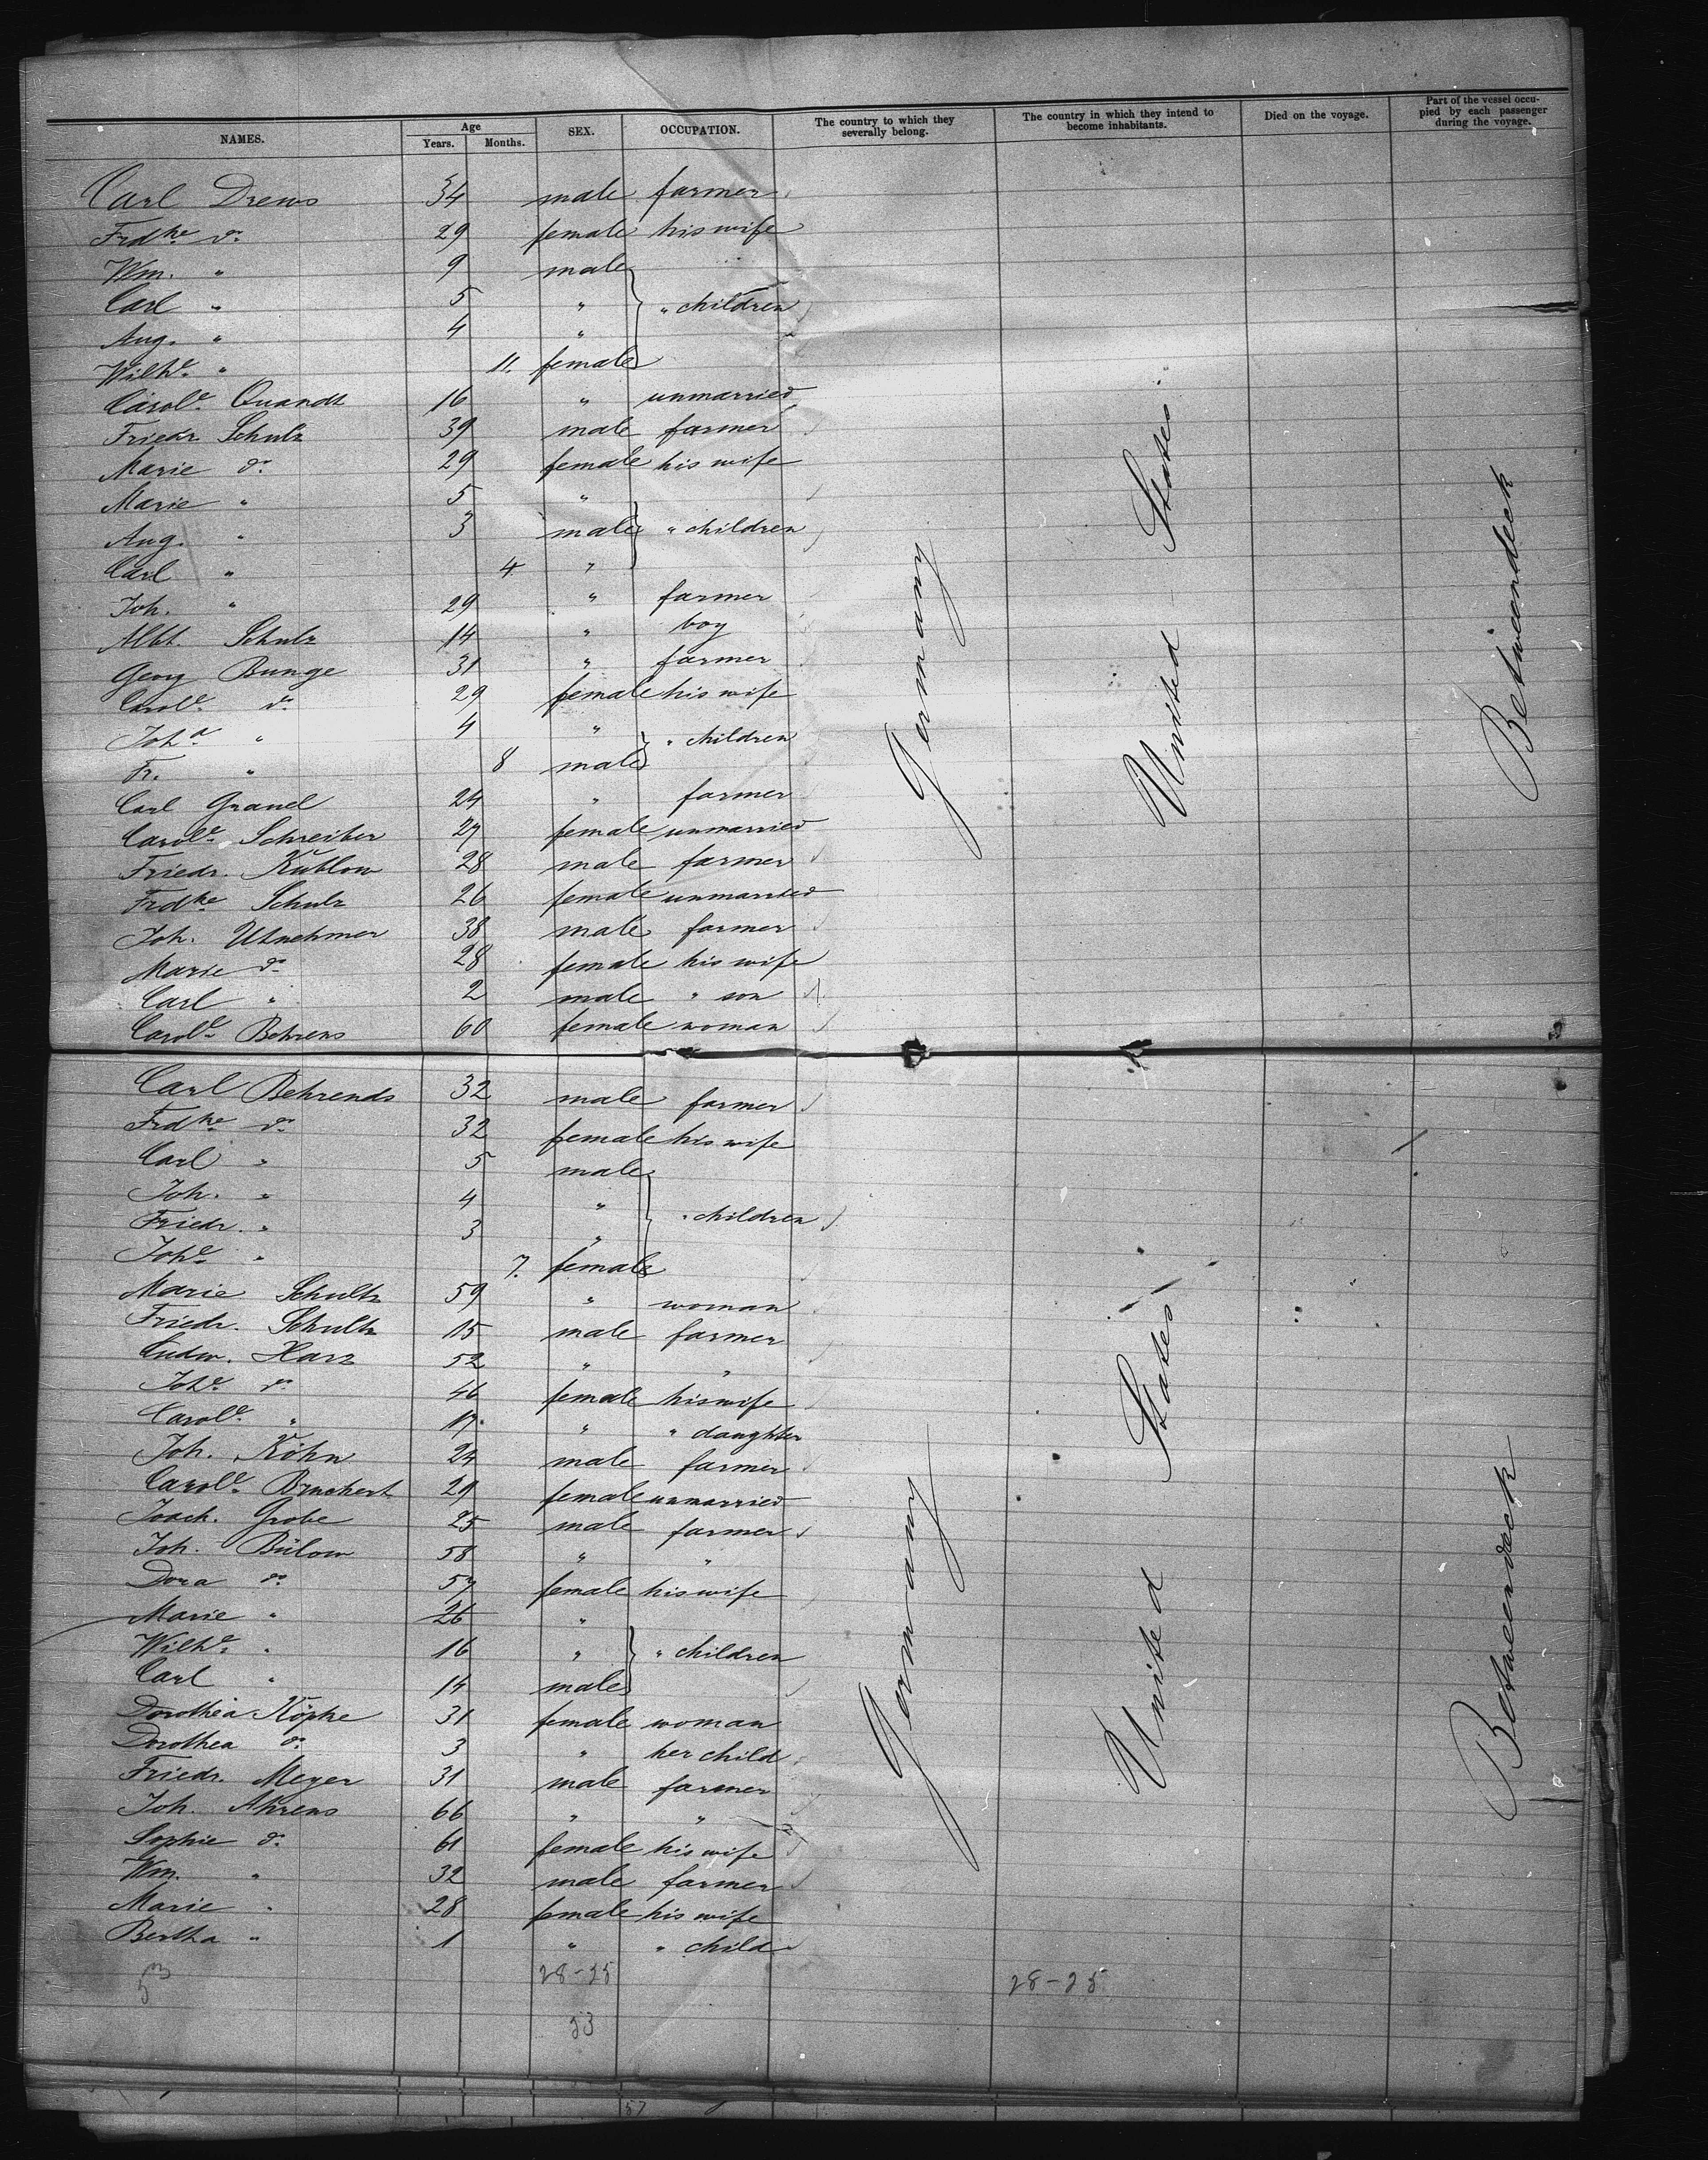 NAMES. Age Years. Months. SEX. OCCUPATION. The country to which they severally belong. The country in which they intend to become inhabitants. Died on the voyage. Part of the vessel occupied by each passenger during the voyage.
Carl Drews 34 male farmer
Frdke do 29 female his wife
Wm. " 9 male
Carl " 5 " " children
Aug. " 4 "
Wilhe. " 11. female
Carole. Quandt 16 " unmarried
Friedr Schulz 39 male farmer
Marie do 29 female his wife
Marie " 5 "
Aug. " 3 male " children
Carl " 4 "
Joh. " 29 " farmer
Albt. Schulz 14 " boy
Georg Bunge 31 " farmer
Carole. do 29 female his wife
Joha. " 4 " " children
Fr. " 8 male
Carl Granel 24 " farmer
Carole. Schreiber 27 female unmarried
Friedr. Kublow 28 male farmer
Frdke Schulz 26 female unmarried
Joh. Utnehmer 38 male farmer
Marie do 28 female his wife
Carl " 2 male " son
Carole. Behrens 60 female woman
Germany United States Betweendeck
Carl Behrends 32 male farmer
Frdke do 32 female his wife
Carl " 5 male
Joh. " 4 " " children
Friedr. " 3 "
Johe. " 7. female
Marie Schultz 59 " woman
Friedr. Schultz 15 male farmer
Ludw. Harz 52 " "
Johe. do 46 female his wife
Carole. " 17 " " daughter
Joh. Köhn 24 male farmer
Carole. Bruchert 29 female unmarried
Joach. Grobe 25 male farmer
Joh. Bülow 58 " "
Dora do 57 female his wife
Marie " 26 "
Wilhe. " 16 " " children
Carl " 14 male
Dorothea Köpke 31 female woman
Dorothea do 3 " her child
Friedr. Meyer 31 male farmer
Joh. Ahrens 66 " "
Sophie do 61 female his wife
Wm. " 32 male farmer
Marie " 28 female his wife
Bertha " 1 " " child
Germany United States Betweendeck
53 28-25 28-25
53
57